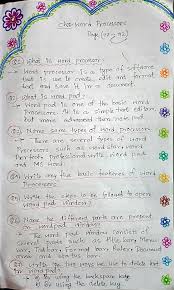 Ch-2 Word Processors
Page (
Q1 What is word processor:
→ Word processor is a type of software
that is use to create, edit and format
text and save it in a document.
Q2 What is word pad?
→ Word pad is one of the basic word
Processors. It is a simple text editor
but more advanced than note pad
Q3 Name some types of word processor.
→ There are several types of word
Processors such as word star, word
Perfect, professional write, word pad
and MS word
Q4 Write any five basic features of word
Processors.
Q5 Write the steps to be followed to open
word pad window?
Q6 Name the different parts are present
on wordpad window?
→ The word pad window consists of
several parts such as title bar, Menu
bar, Toolbar, Format bar, Ruler,
area and status bar.
Q7 Write the two ways we use to delete text
in word pad?
→ By using the backspace key
By using the delete key.